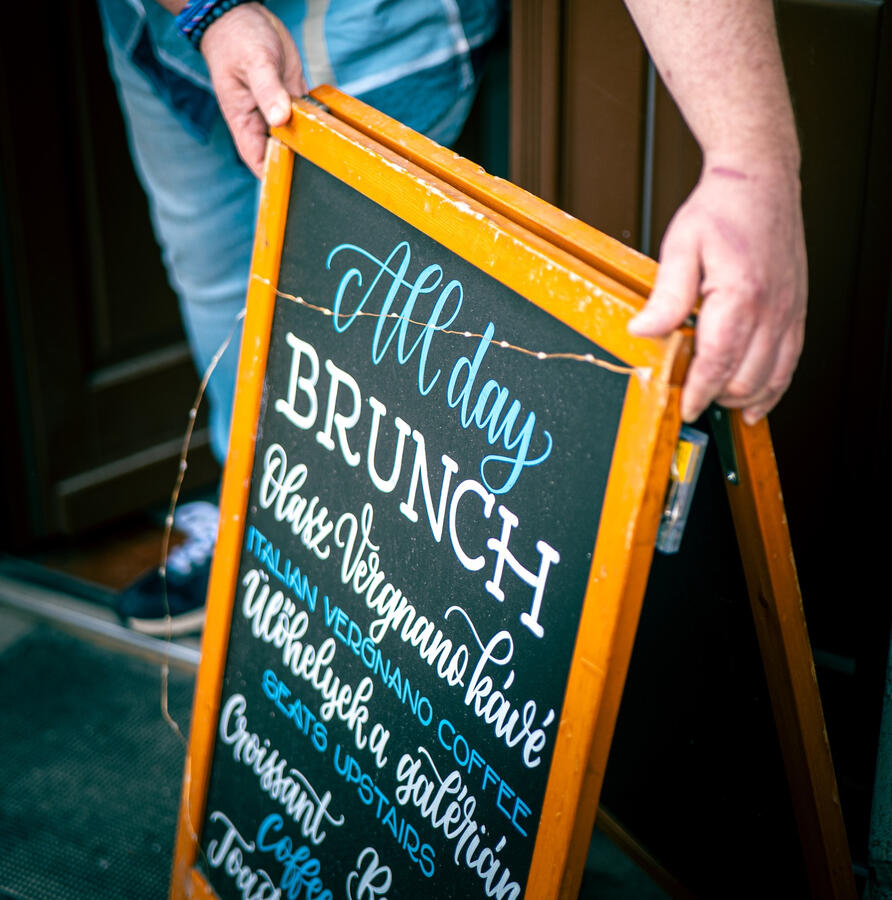 All day
BRUNCH
Olasz Vergnano kávé
ITALIAN VERGNANO COFFEE
Ülőhelyek a galérián
SEATS UPSTAIRS
Croissant
Coffee